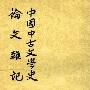 中国中古文学史
論文雜記